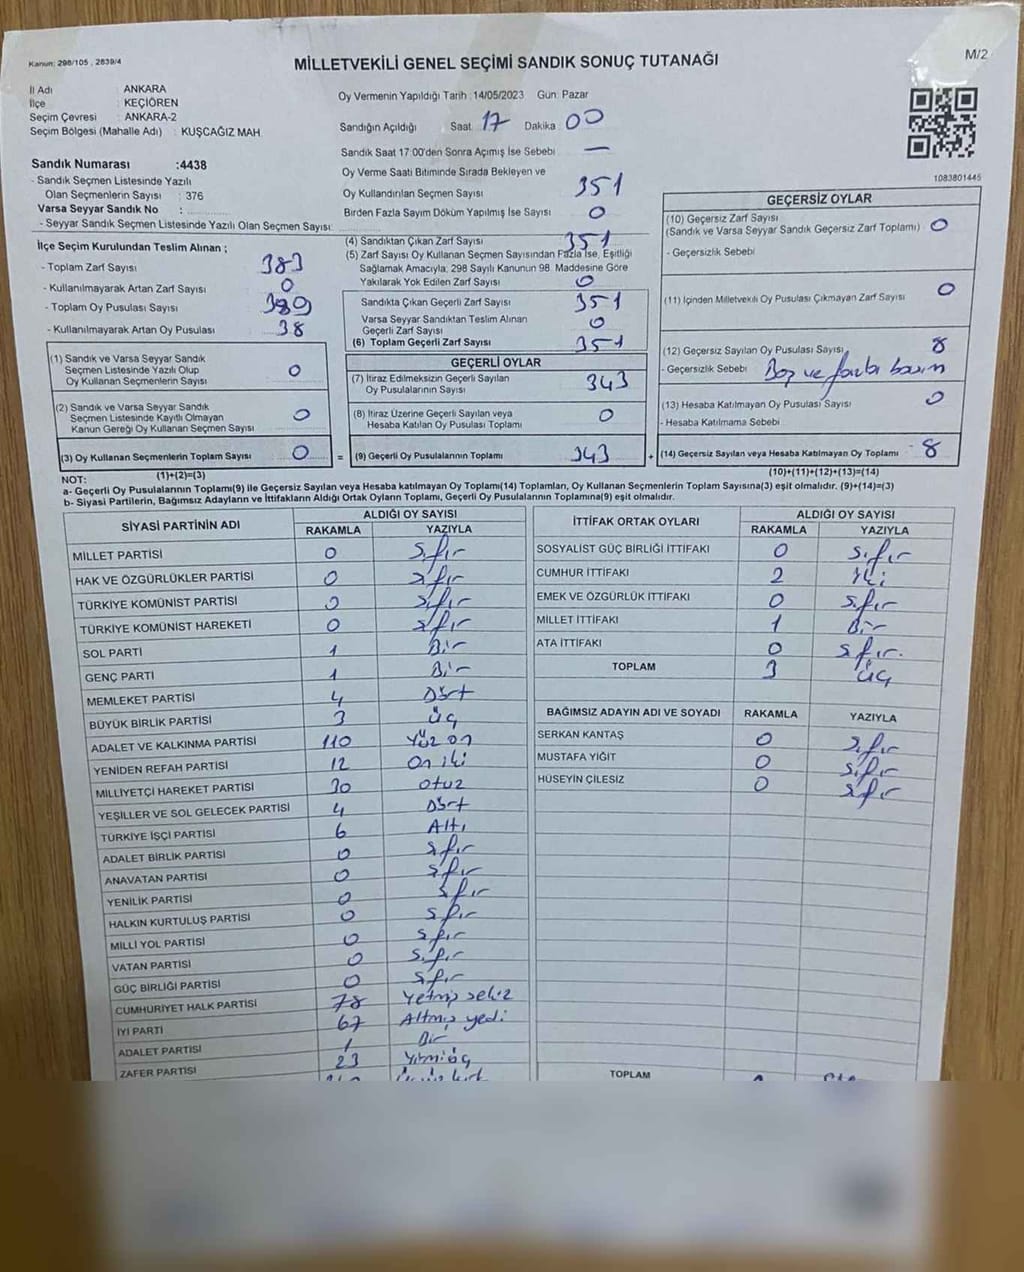 Kanun: 298/105 , 2839/4
MİLLETVEKİLİ GENEL SEÇİMİ SANDIK SONUÇ TUTANAĞI
M/2
İl Adı ANKARA
İlçe KEÇİÖREN
Seçim Çevresi : ANKARA-2
Seçim Bölgesi (Mahalle Adı) : KUŞCAĞIZ MAH.
Sandık Numarası :4438
- Sandık Seçmen Listesinde Yazılı
Olan Seçmenlerin Sayısı : 376
Varsa Seyyar Sandık No :
- Seyyar Sandık Seçmen Listesinde Yazılı Olan Seçmen Sayısı:
Oy Vermenin Yapıldığı Tarih :14/05/2023 Gün: Pazar
Sandığın Açıldığı Saat 17 Dakika 00
Sandık Saat 17:00'den Sonra Açımış İse Sebebi —
Oy Verme Saati Bitiminde Sırada Bekleyen ve
Oy Kullandırılan Seçmen Sayısı 351
Birden Fazla Sayım Döküm Yapılmış İse Sayısı 0
1083801445
İlçe Seçim Kurulundan Teslim Alınan ;
- Toplam Zarf Sayısı 383
- Kullanılmayarak Artan Zarf Sayısı 0
- Toplam Oy Pusulası Sayısı 389
- Kullanılmayarak Artan Oy Pusulası 38
(1) Sandık ve Varsa Seyyar Sandık
Seçmen Listesinde Yazılı Olup
Oy Kullanan Seçmenlerin Sayısı 0
(2) Sandık ve Varsa Seyyar Sandık
Seçmen Listesinde Kayıtlı Olmayan
Kanun Gereği Oy Kullanan Seçmen Sayısı 0
(3) Oy Kullanan Seçmenlerin Toplam Sayısı 0
(1)+(2)=(3)
(4) Sandıktan Çıkan Zarf Sayısı 351
(5) Zarf Sayısı Oy Kullanan Seçmen Sayısından Fazla İse, Eşitliği
Sağlamak Amacıyla, 298 Sayılı Kanunun 98. Maddesine Göre
Yakılarak Yok Edilen Zarf Sayısı 0
Sandıkta Çıkan Geçerli Zarf Sayısı 351
Varsa Seyyar Sandıktan Teslim Alınan
Geçerli Zarf Sayısı 0
(6) Toplam Geçerli Zarf Sayısı 351
GEÇERLİ OYLAR
(7) İtiraz Edilmeksizin Geçerli Sayılan
Oy Pusulalarının Sayısı 343
(8) İtiraz Üzerine Geçerli Sayılan veya
Hesaba Katılan Oy Pusulası Toplamı 0
= (9) Geçerli Oy Pusulalarının Toplamı 343 +
GEÇERSİZ OYLAR
(10) Geçersiz Zarf Sayısı
(Sandık ve Varsa Seyyar Sandık Geçersiz Zarf Toplamı) 0
- Geçersizlik Sebebi
(11) İçinden Milletvekili Oy Pusulası Çıkmayan Zarf Sayısı 0
(12) Geçersiz Sayılan Oy Pusulası Sayısı 8
- Geçersizlik Sebebi Boş ve fazla basım
(13) Hesaba Katılmayan Oy Pusulası Sayısı 0
- Hesaba Katılmama Sebebi
(14) Geçersiz Sayılan veya Hesaba Katılmayan Oy Toplamı 8
(10)+(11)+(12)+(13)=(14)
NOT:
a- Geçerli Oy Pusulalarının Toplamı(9) ile Geçersiz Sayılan veya Hesaba katılmayan Oy Toplamı(14) Toplamları, Oy Kullanan Seçmenlerin Toplam Sayısına(3) eşit olmalıdır. (9)+(14)=(3)
b- Siyasi Partilerin, Bağımsız Adayların ve İttifakların Aldığı Ortak Oyların Toplamı, Geçerli Oy Pusulalarının Toplamına(9) eşit olmalıdır.
SİYASİ PARTİNİN ADI ALDIĞI OY SAYISI
RAKAMLA YAZIYLA
MİLLET PARTİSİ 0 Sıfır
HAK VE ÖZGÜRLÜKLER PARTİSİ 0 Sıfır
TÜRKİYE KOMÜNİST PARTİSİ 0 Sıfır
TÜRKİYE KOMÜNİST HAREKETİ 0 Sıfır
SOL PARTİ 1 Bir
GENÇ PARTİ 1 Bir
MEMLEKET PARTİSİ 4 Dört
BÜYÜK BİRLİK PARTİSİ 3 Üç
ADALET VE KALKINMA PARTİSİ 110 Yüz on
YENİDEN REFAH PARTİSİ 12 On iki
MİLLİYETÇİ HAREKET PARTİSİ 30 otuz
YEŞİLLER VE SOL GELECEK PARTİSİ 4 Dört
TÜRKİYE İŞÇİ PARTİSİ 6 Altı
ADALET BİRLİK PARTİSİ 0 Sıfır
ANAVATAN PARTİSİ 0 Sıfır
YENİLİK PARTİSİ 0 Sıfır
HALKIN KURTULUŞ PARTİSİ 0 Sıfır
MİLLİ YOL PARTİSİ 0 Sıfır
VATAN PARTİSİ 0 Sıfır
GÜÇ BİRLİĞİ PARTİSİ 0 Sıfır
CUMHURİYET HALK PARTİSİ 78 Yetmiş sekiz
İYİ PARTİ 67 Altmış yedi
ADALET PARTİSİ 1 Bir
ZAFER PARTİSİ 23 Yirmiüç
İTTİFAK ORTAK OYLARI ALDIĞI OY SAYISI
RAKAMLA YAZIYLA
SOSYALİST GÜÇ BİRLİĞİ İTTİFAKI 0 Sıfır
CUMHUR İTTİFAKI 2 İki
EMEK VE ÖZGÜRLÜK İTTİFAKI 0 Sıfır
MİLLET İTTİFAKI 1 Bir
ATA İTTİFAKI 0 Sıfır.
TOPLAM 3 Üç
BAĞIMSIZ ADAYIN ADI VE SOYADI RAKAMLA YAZIYLA
SERKAN KANTAŞ 0 Sıfır
MUSTAFA YİĞİT 0 Sıfır
HÜSEYİN ÇİLESİZ 0 Sıfır
TOPLAM